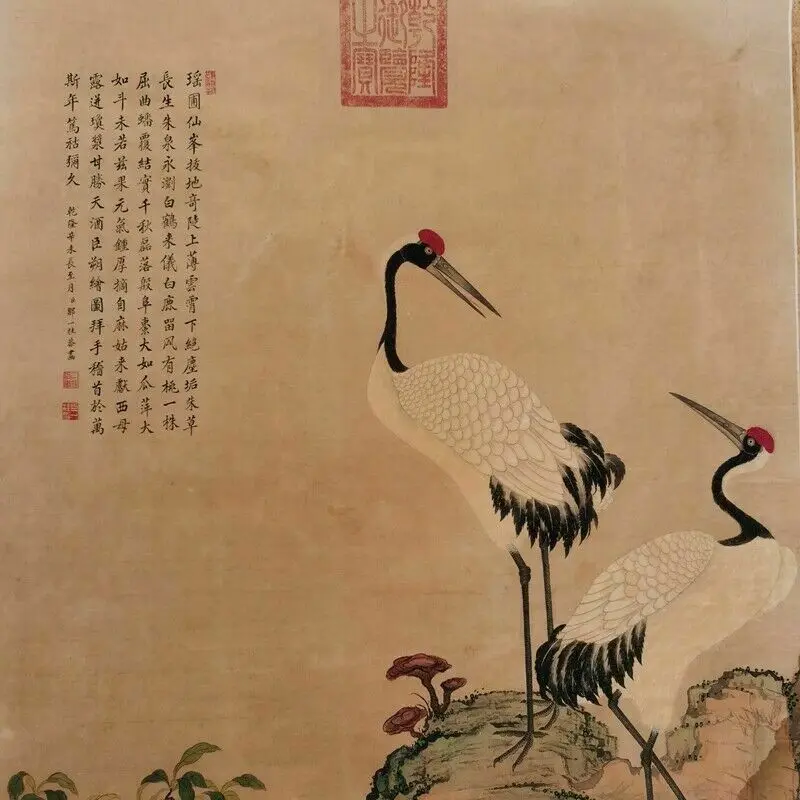 乾隆御覽之寶
瑶圃仙峯拔地竒陡上薄雲霄下絕塵垢朱草
長生朱泉永澍白鶴来儀白鹿畱风有桃一株
屈曲蟠覆結實千秋磊落殷阜棗大如瓜萍大
如斗未若兹果元氣鍾厚摘自麻姑来獻西母
露逆瓊漿甘勝天酒臣朔繪圖拜手稽首於萬
斯年篤祜彌久 乾隆辛未長至月日鄒一桂恭畫